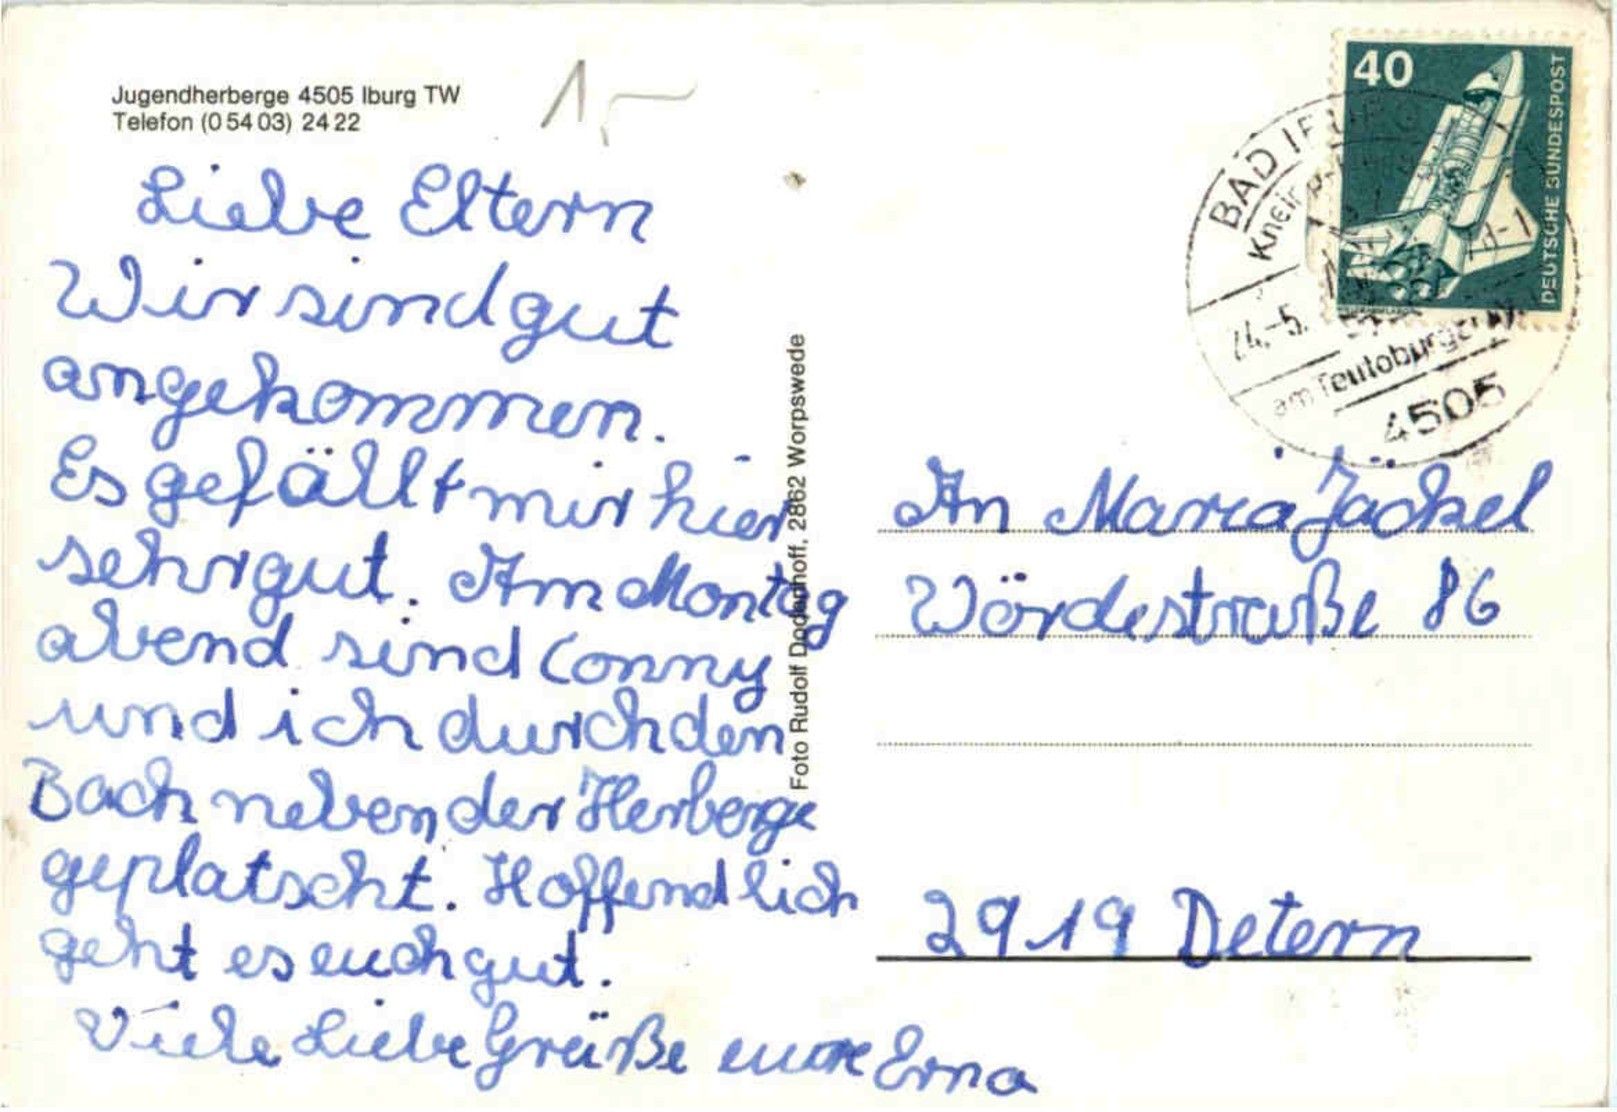 Jugendherberge 4505 Iburg TW
Telefon (0 54 03) 24 22
1,-
Liebe Eltern
Wir sind gut
angekommen.
Es gefällt mir hier
sehr gut. Am Montag
abend sind Conny
und ich durch den
Bach neben der Herberge
geplatscht. Hoffendlich
geht es euch gut.
Viele Liebe Grüße eure Erna
Foto Rudolf Dodenhoff, 2862 Worpswede
40
DEUTSCHE BUNDESPOST
BAD IBURG
am Teutoburger
4505
An Maria Jäckel
Wördestraße 86
2919 Detern